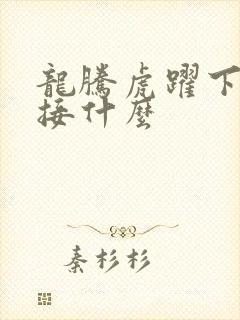 龍騰虎躍下
接什麼
秦杉杉